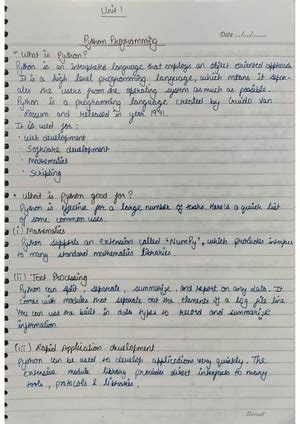 Unit 1
Date ../../..
Python Programming
* What is Python?
Python is an interpreted language that employs an object oriented approach
It is a high level programming language, which means it sepe-
rates the users from the operating system as much as possible.
Python is a programming language created by Guido Van
Rossum and released in year 1991.
It is used for:
• Web development
• Software development
• Mathematics
• Scripting
* What is Python good for?
Python is effective for a large number of tasks. Here's a quick list
of some common uses.
(i) Mathematics
Python supports an extension called "NumPy", which provides interfaces
to many standard mathematics libraries.
(ii) Text Processing
Python can split separate, summarize, and report on any data. It
comes with modules that separate out the elements of a log file line.
You can use the built in data types to record and summarize
information
(iii) Rapid Application development
Python can be used to develop applications very quickly. The
extensive module library provides direct interfaces to many
tools, protocols & libraries.